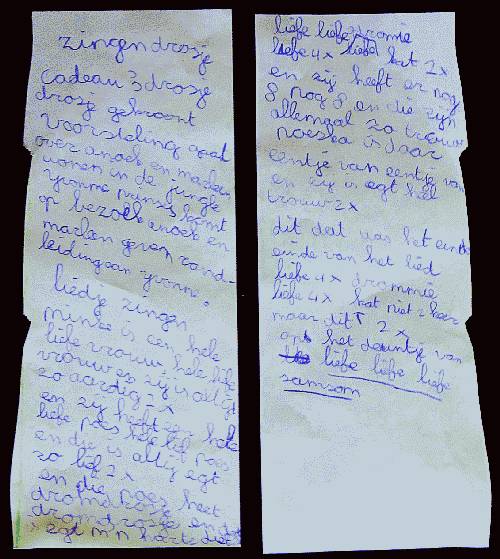 zingen drosje
cadeau 3 drosje
drosje gekroont
voorsteling gaat
over anoek en marloen
wonen in de jungle
yvonne prinses komt
op bezoek anoek en
marloen geven rond-
leiding aan yvonne.
liedje zingen
minke is een hele
liefe vrouw, hele life
vrouw es zij is altijt
zo aardig 2x
en zij heeft een hele
liefe poes hele lief poes
en die is altij egt
zo lief 2x
en die poes heet
egt m'n harte dief
liefe liefe drommie
liefe 4x liefe kat 2x
en zij heeft er nog
8 nog 8 en die zijn
allemaal zo trouw
poeska is jaar
eentje van eentje van
en zij is egt heel
trouw 2x
dit deel was het einde
einde van het lied
liefe 4x drommie
liefe 4x kat niet 2 keer
maar dit 2x
op het deuntje van
liefe liefe liefe
samson